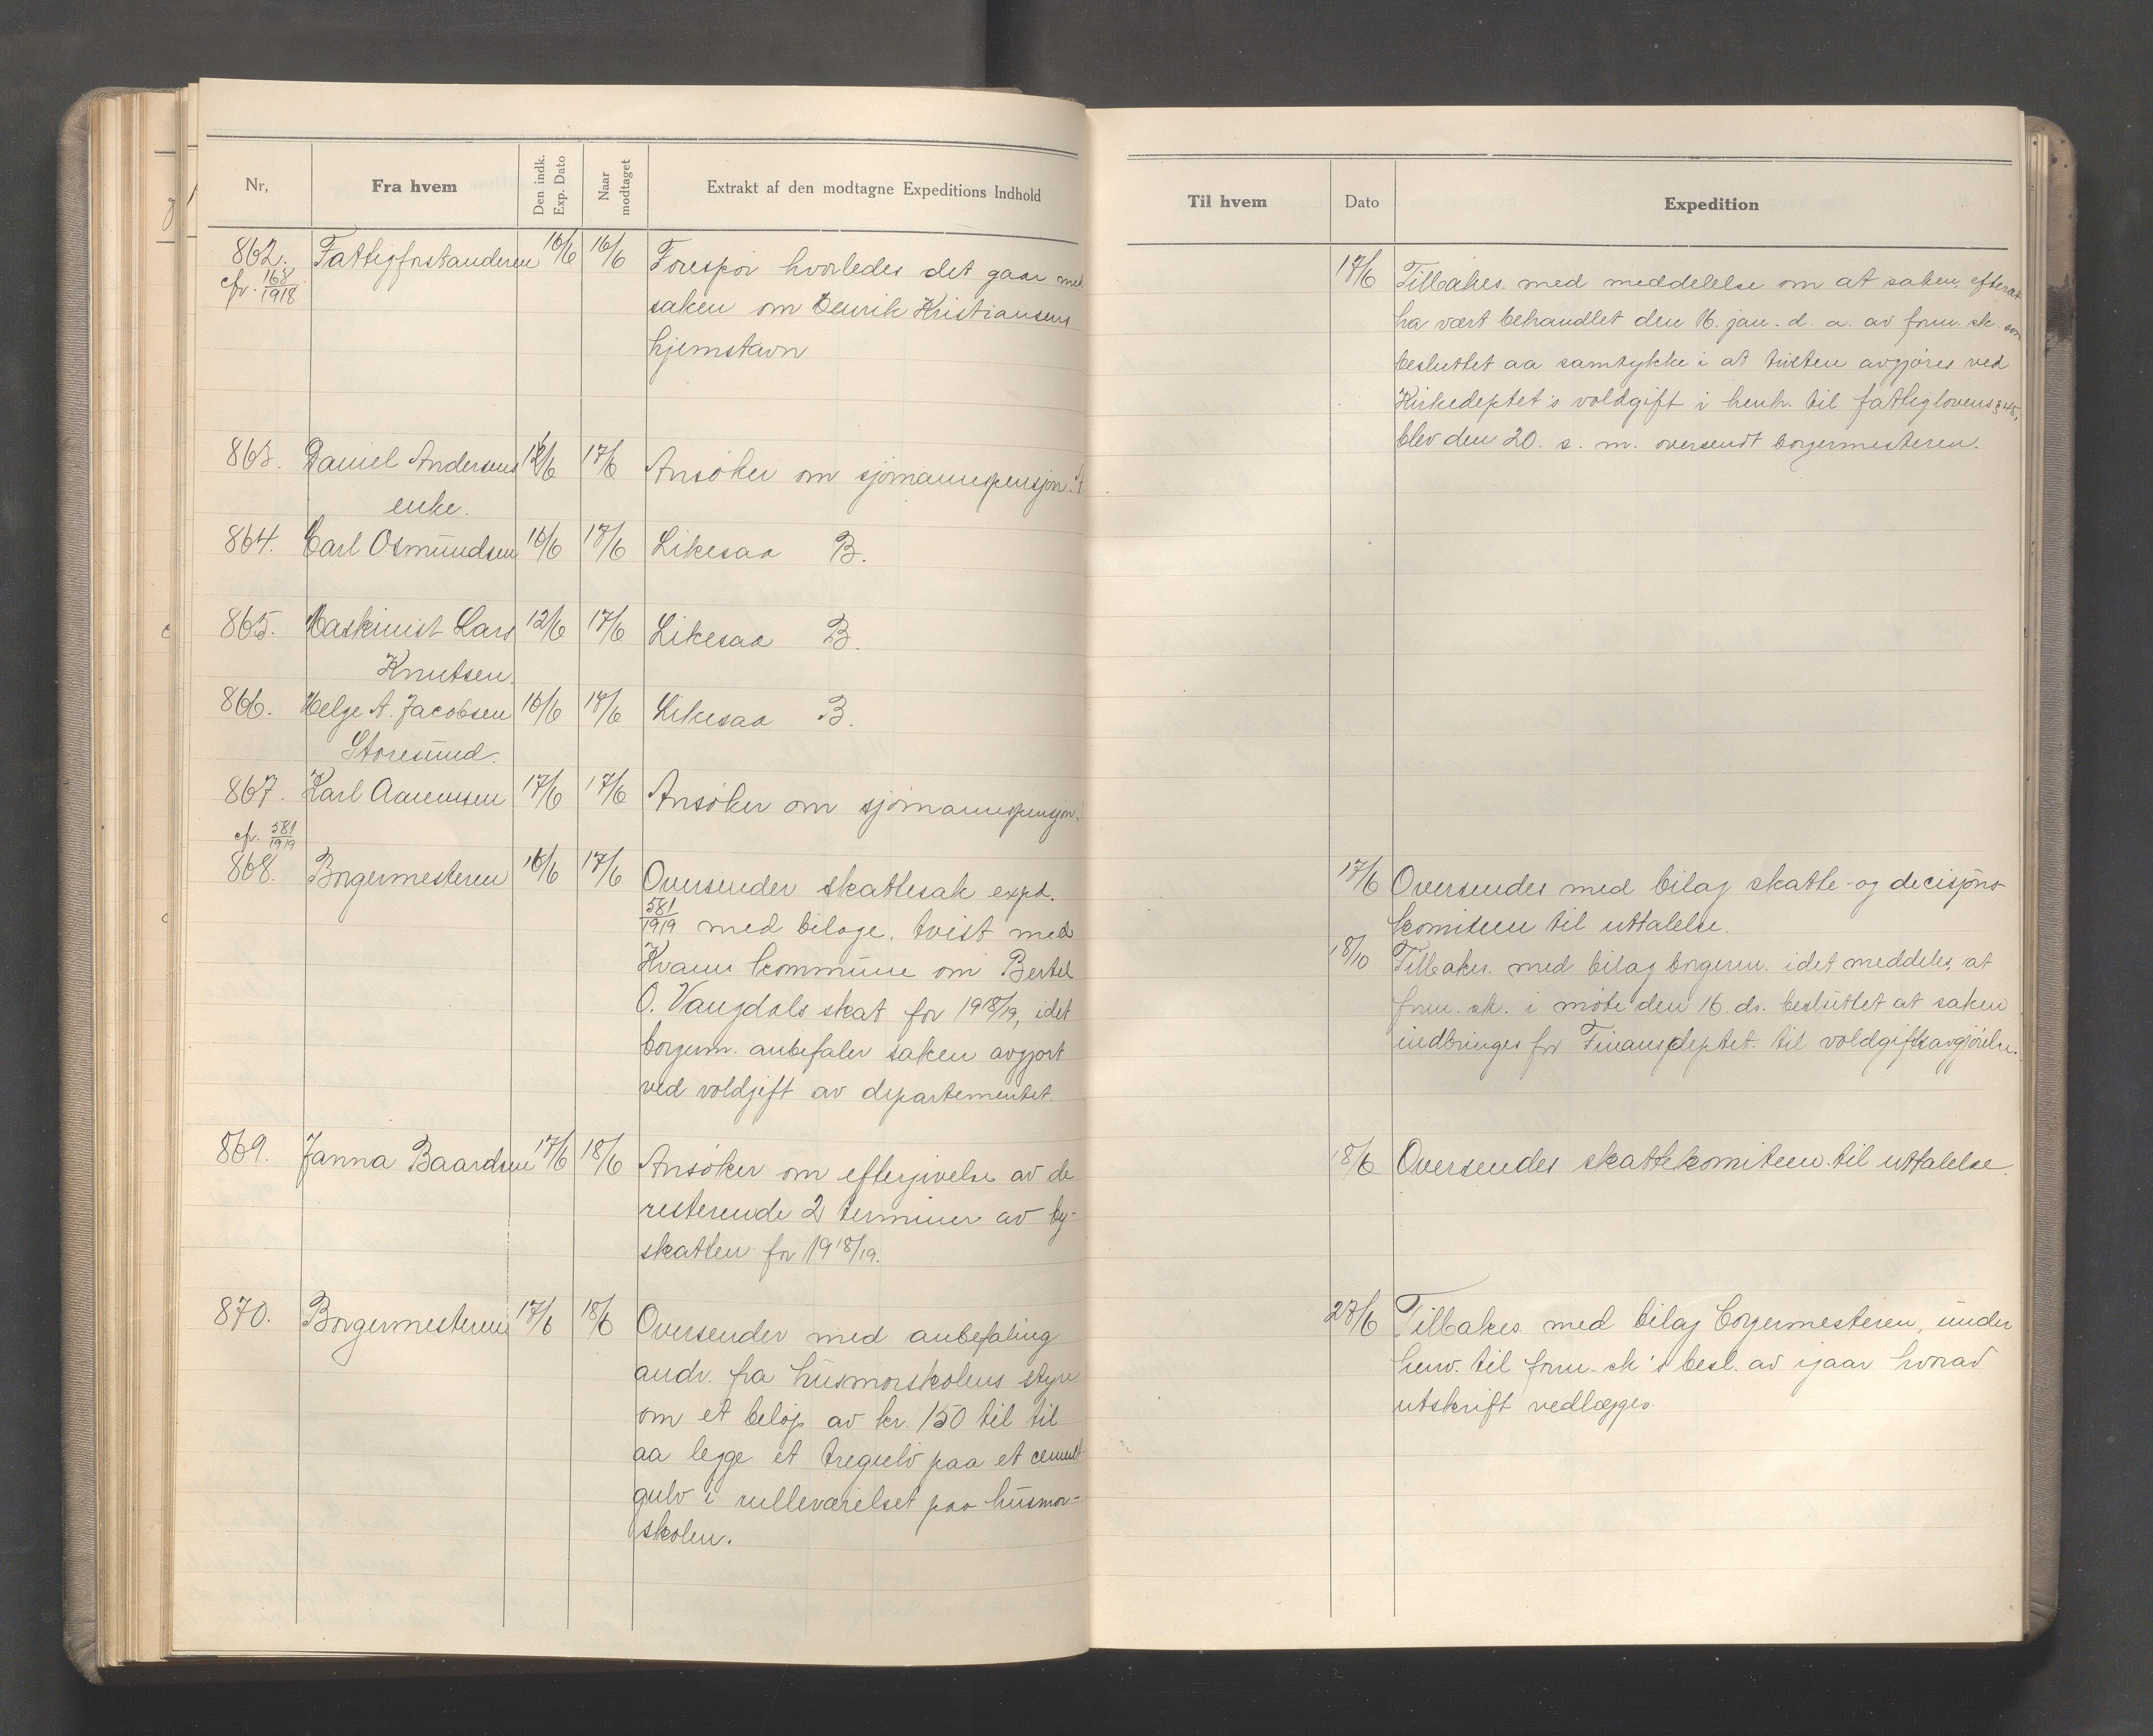 Nr,
Fra hvem
Den indk. Exp. Dato
Naar modtaget
Extrakt af den modtagne Expeditions Indhold
862. Fattigforstanderen 16/6 16/6 Forespør hvorledes det gaar med
cfr. 168/1918
saken om Henrik Kristiansens
hjemstavn
863. Daniel Andersens 12/6 17/6 Ansøker om sjømannspensjon.
enke.
864. Carl Osmundsen 16/6 17/6 Likesaa B.
865. Maskinist Lars 12/6 17/6 Likesaa B.
Knutsen.
866. Helge A. Jacobsen 16/6 17/6 Likesaa B.
Storesund.
867. Karl Aanensen 17/6 17/6 Ansøker om sjømannspensjon.
cfr. 581/1919
868. Borgermesteren 16/6 17/6 Oversender skattesak expd.
581/1919 med bilage, tvist med
Kvam kommune om Bertel
O. Vangdals skat for 1918/19, idet
borgerm. anbefaler saken avgjort
ved voldgift av departementet.
869. Janna Baardsen 17/6 18/6 Ansøker om eftergivelse av de
resterende 2 terminer av by-
skatten for 1918/19.
870. Borgermesteren 17/6 18/6 Oversender med anbefaling
andr. fra husmorskolens styre
om et beløp av kr. 150 til til
aa legge et tregulv paa et cement-
gulv i rulleværelset paa husmor-
skolen.
Til hvem
Dato
Expedition
17/6 Tilbakes. med meddelelse om at saken, efterat
ha vært behandlet den 16. jan. d. a. av form. sk. som
besluttet aa samtykke i at tvisten avgjøres ved
Kirkedeptet's voldgift i henh. til fattiglovens § 45,
blev den 20. s. m. oversendt borgermesteren.
17/6 Oversendes med bilag skatte- og decisjons-
komiteen til uttalelse.
18/10 Tilbakes. med bilag borgerm. idet meddeles, at
form. sk. i møte den 16. ds. besluttet at saken
indbringes for Finansdeptet. til voldgiftsavgjørelse.
18/6 Oversendes skattekomiteen til uttalelse.
27/6 Tilbakes med bilag borgermesteren, under
henv. til form. sk's besl. av igaar hvorav
utskrift vedlægges.